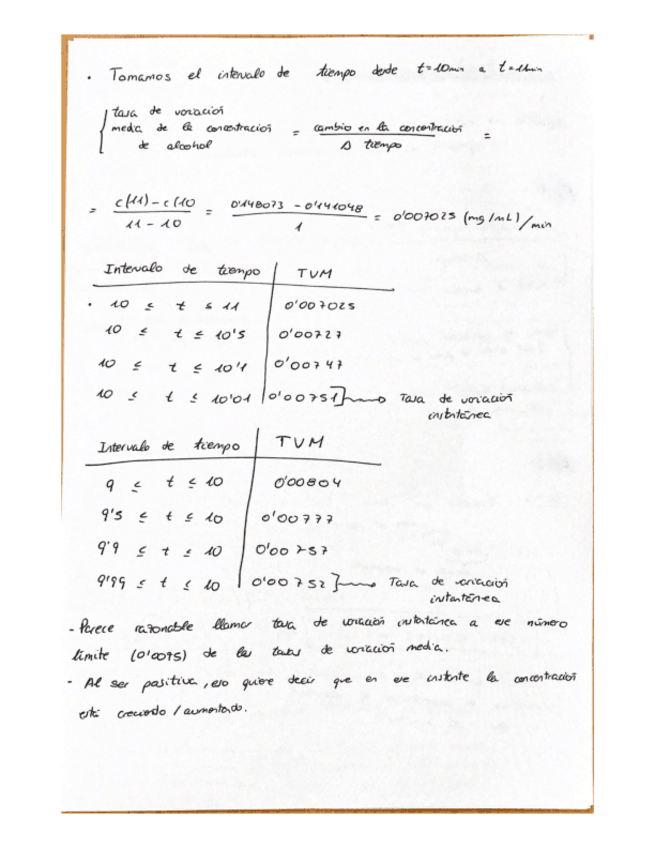 · Tomamos el intervalo de tiempo desde t=10min a t=11min
tasa de variación
media de la concentración = cambio en la concentración =
de alcohol Δ tiempo
= c(11)-c(10 = 0'148073 - 0'141048 = 0'007025 (mg/mL)/min
11-10 1
Intervalo de tiempo TVM
· 10 ≤ t ≤ 11 0'007025
10 ≤ t ≤ 10'5 0'00727
10 ≤ t ≤ 10'1 0'00747
10 ≤ t ≤ 10'01 0'00751 Tasa de variación
instantánea
Intervalo de tiempo TVM
9 ≤ t ≤ 10 0'00804
9'5 ≤ t ≤ 10 0'00777
9'9 ≤ t ≤ 10 0'00757
9'99 ≤ t ≤ 10 0'00752 Tasa de variación
instantánea
- Parece razonable llamar tasa de variación instantánea a ese número
límite (0'0075) de las tasas de variación media.
- Al ser positiva, eso quiere decir que en ese instante la concentración
está creciendo / aumentado.